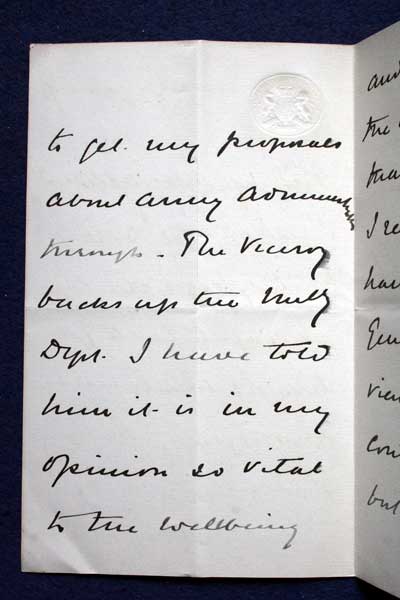 to get my proposals
about army administration
through. The Viceroy
backs up the Mily
Dept. I have told
him it is in my
opinion so vital
to the wellbeing
and
the
I re
but